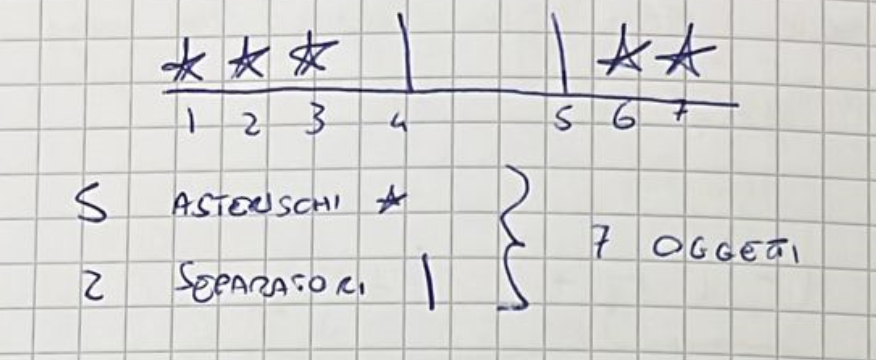 ★ ★ ★ | | ★ ★
1 2 3 4 5 6 7
5 ASTERISCHI ★
2 SEPARATORI |
} 7 OGGETTI